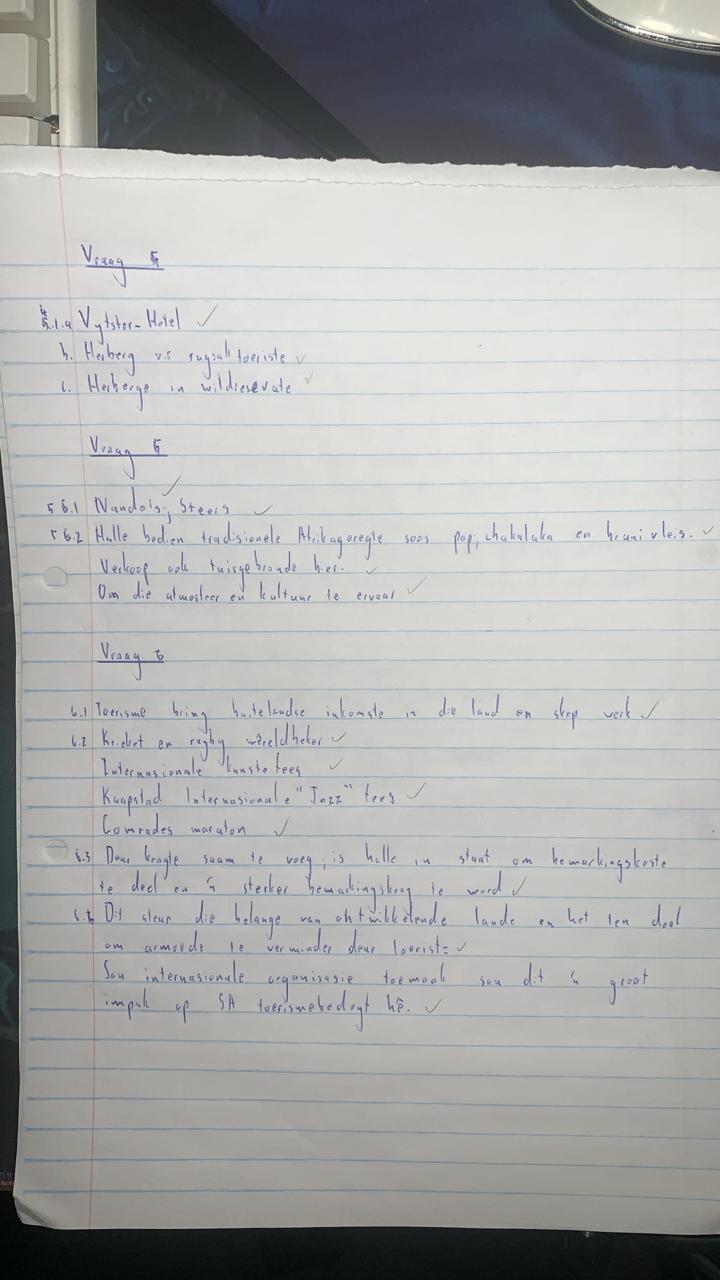 Vraag 5
5.1.a Vyfster-Hotel ✓
b. Herberg vir rugsaktoeriste ✓
c. Herberge in wildresevate ✓
Vraag 5
5 6.1 Nando's; Steers ✓
5 6.2 Hulle bedien tradisionele Afrikageregte soos pap, chakalaka en braaivleis. ✓
Verkoop ook tuisgebroude bier. ✓
Om die atmosfeer en kultuur te ervaar ✓
Vraag 6
6.1 Toerisme bring buitelandse inkomste in die land en skep werk ✓
6.2 Krieket en rugby wêreldbeker ✓
Internasionale kunste fees ✓
Kaapstad Internasionale "Jazz" fees ✓
Comrades maraton ✓
6.3 Deur kragte saam te voeg, is hulle in staat om bemarkingskoste
te deel en 'n sterker bemarkingskrag te word ✓
6.4 Dit steun die belange van ontwikkelende lande en het ten doel
om armoede te verminder deur ✓
Sou internasionale organisasie toemaak sou dit 'n groot
impak op SA toerismebedryf hê. ✓